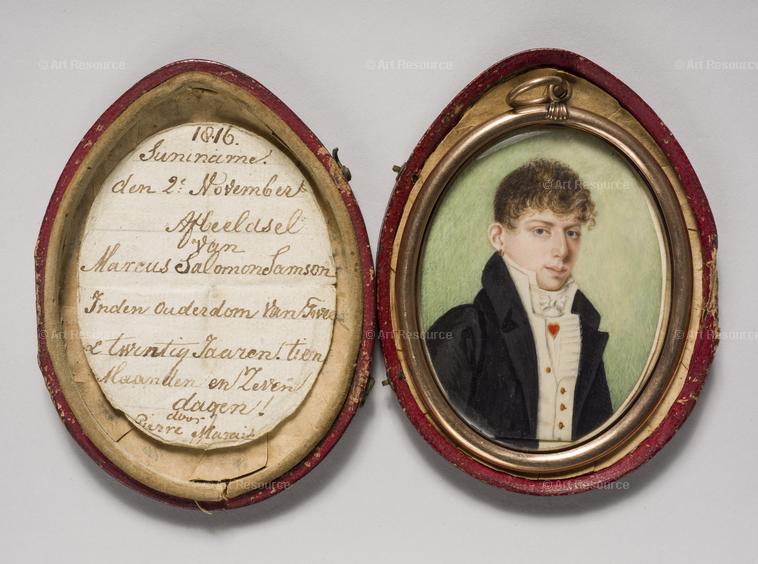 1816.
Suriname!
den 2e November
Afbeeldsel
van
Marcus Salomon Samson
Inden Ouderdom Van Twee
& twintig Jaaren! tien
Maanden en Zeven
dagen!
door
Pierre Marais
© Art Resource
© Art Resource
© Art Resource
© Art Resource
© Art Resource
© Art Resource
© Art Resource
© Art Resource
© Art Resource
© Art Resource
© Art Resource
© Art Resource